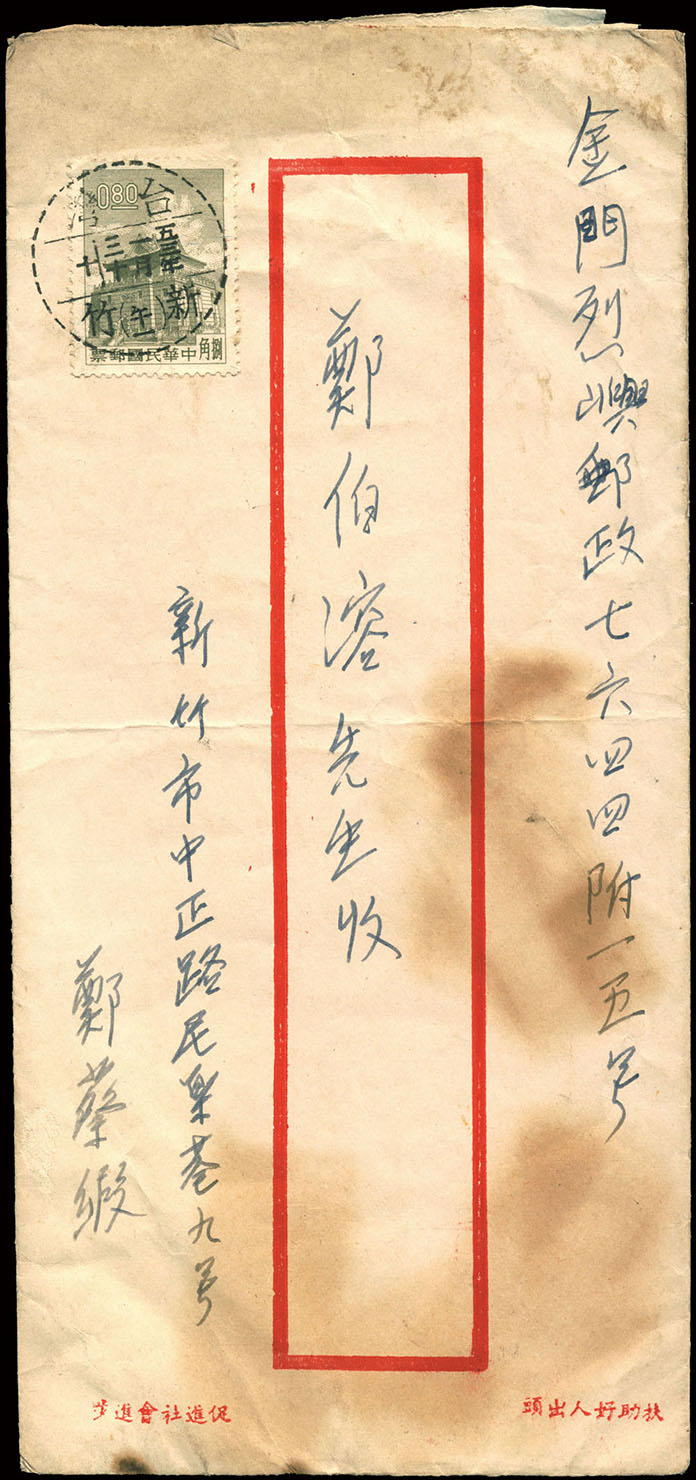 金門列嶼郵政七六四四附一五号
鄭伯溶先生收
新竹市中正路民樂巷九号
鄭蔡緞
0.80
台灣
五三年
十一月
三十
新竹
(主)
票郵國民華中
捌角
扶助好人出頭
促進社會進步